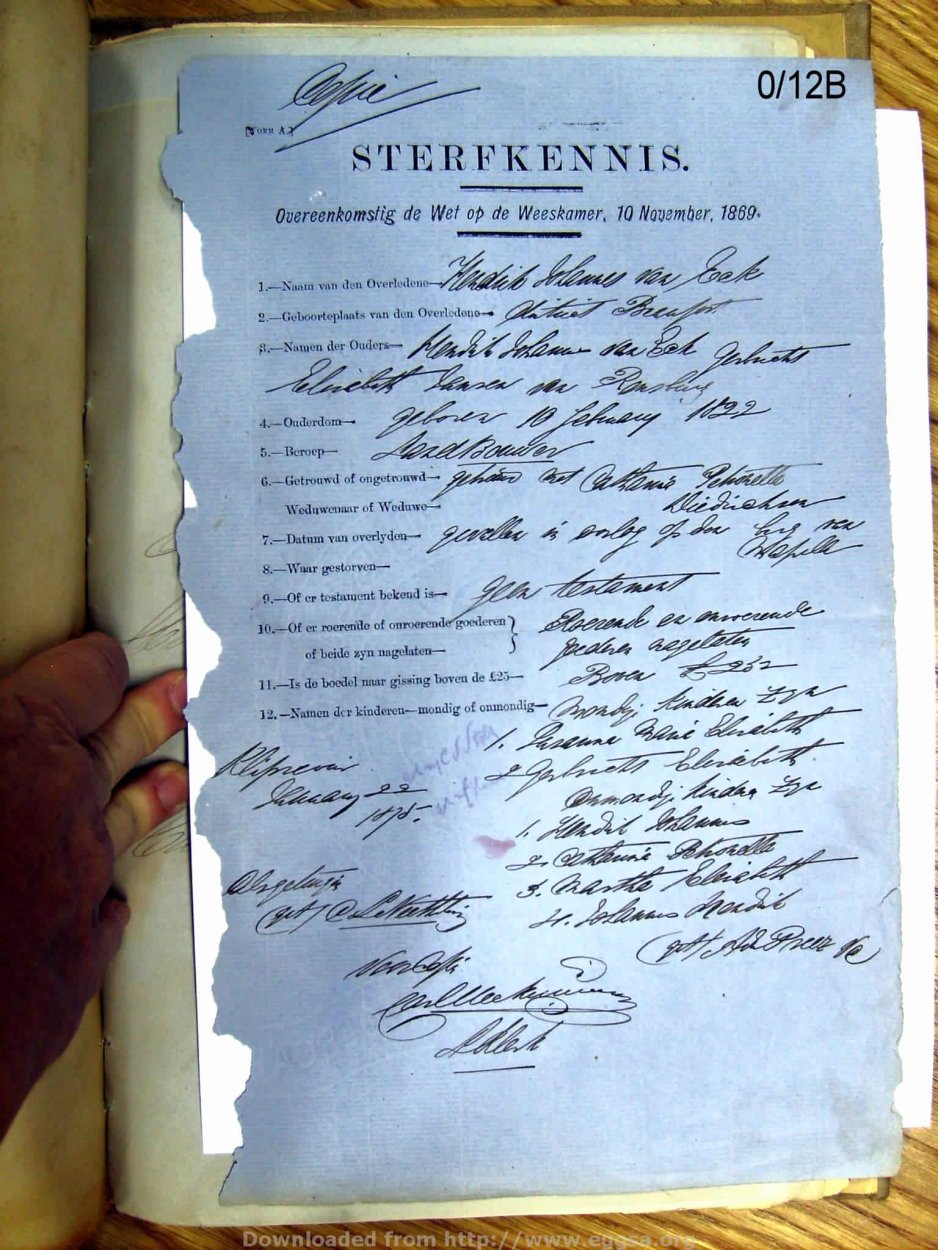 Copie
0/12B
[FORM A.]
STERFKENNIS.
Overeenkomstig de Wet op de Weeskamer, 10 November, 1869.
1.—Naam van den Overledene— Hendrik Johannes van Eck
2.—Geboorteplaats van den Overledene— District Beaufort
3.—Namen der Ouders— Hendrik Johannes van Eck Gerbrecht
Elizabeth Jansen van Rensburg
4.—Ouderdom— geboren 10 February 1822
5.—Beroep— Landbouwer
6.—Getrouwd of ongetrouwd— getrouwd met Catharina Petronella
Weduwenaar of Weduwe— Diedrichsen
7.—Datum van overlyden— gevallen in oorlog op den berg van
Mapella
8.—Waar gestorven—
9.—Of er testament bekend is— geen testament
10.—Of er roerende of onroerende goederen Roerende en onroerende
of beide zyn nagelaten— goederen nagelaten
11.—Is de boedel naar gissing boven de £25— Boven £25
12.—Namen der kinderen—mondig of onmondig— Mondige kinderen zyn
1. Susanna Maria Elizabeth
2 Gerbrecht Elizabeth
Kliprevier
January 22
Onmondige kinderen zyn
1. Hendrik Johannes
2. Catharina Petronella
3. Martha Elizabeth
4. Johannes Hendrik
Als getuige
(get)
(get) du Preez
Voor Copie
Klerk
Downloaded from http://www.eggsa.org